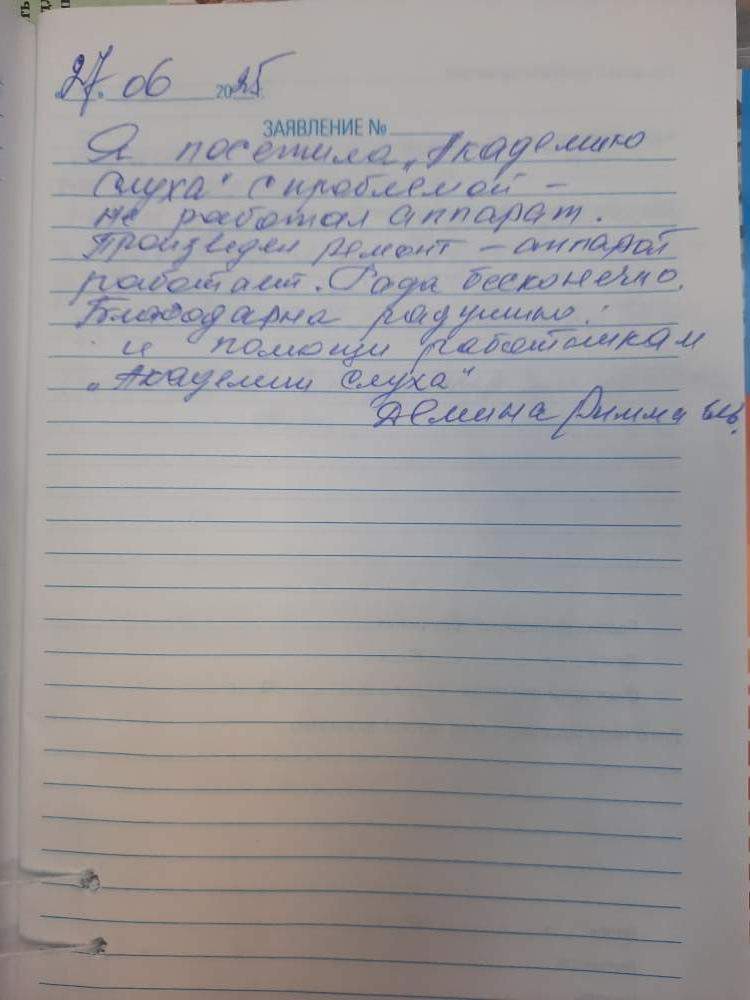 27. 06 2025
ЗАЯВЛЕНИЕ №
Я посетила „Академию
слуха" с проблемой –
не работал аппарат.
Произведен ремонт – аппарат
работает. Рада бесконечно.
Благодарна радушию
и помощи работникам
„Академии слуха"
Демина Римма